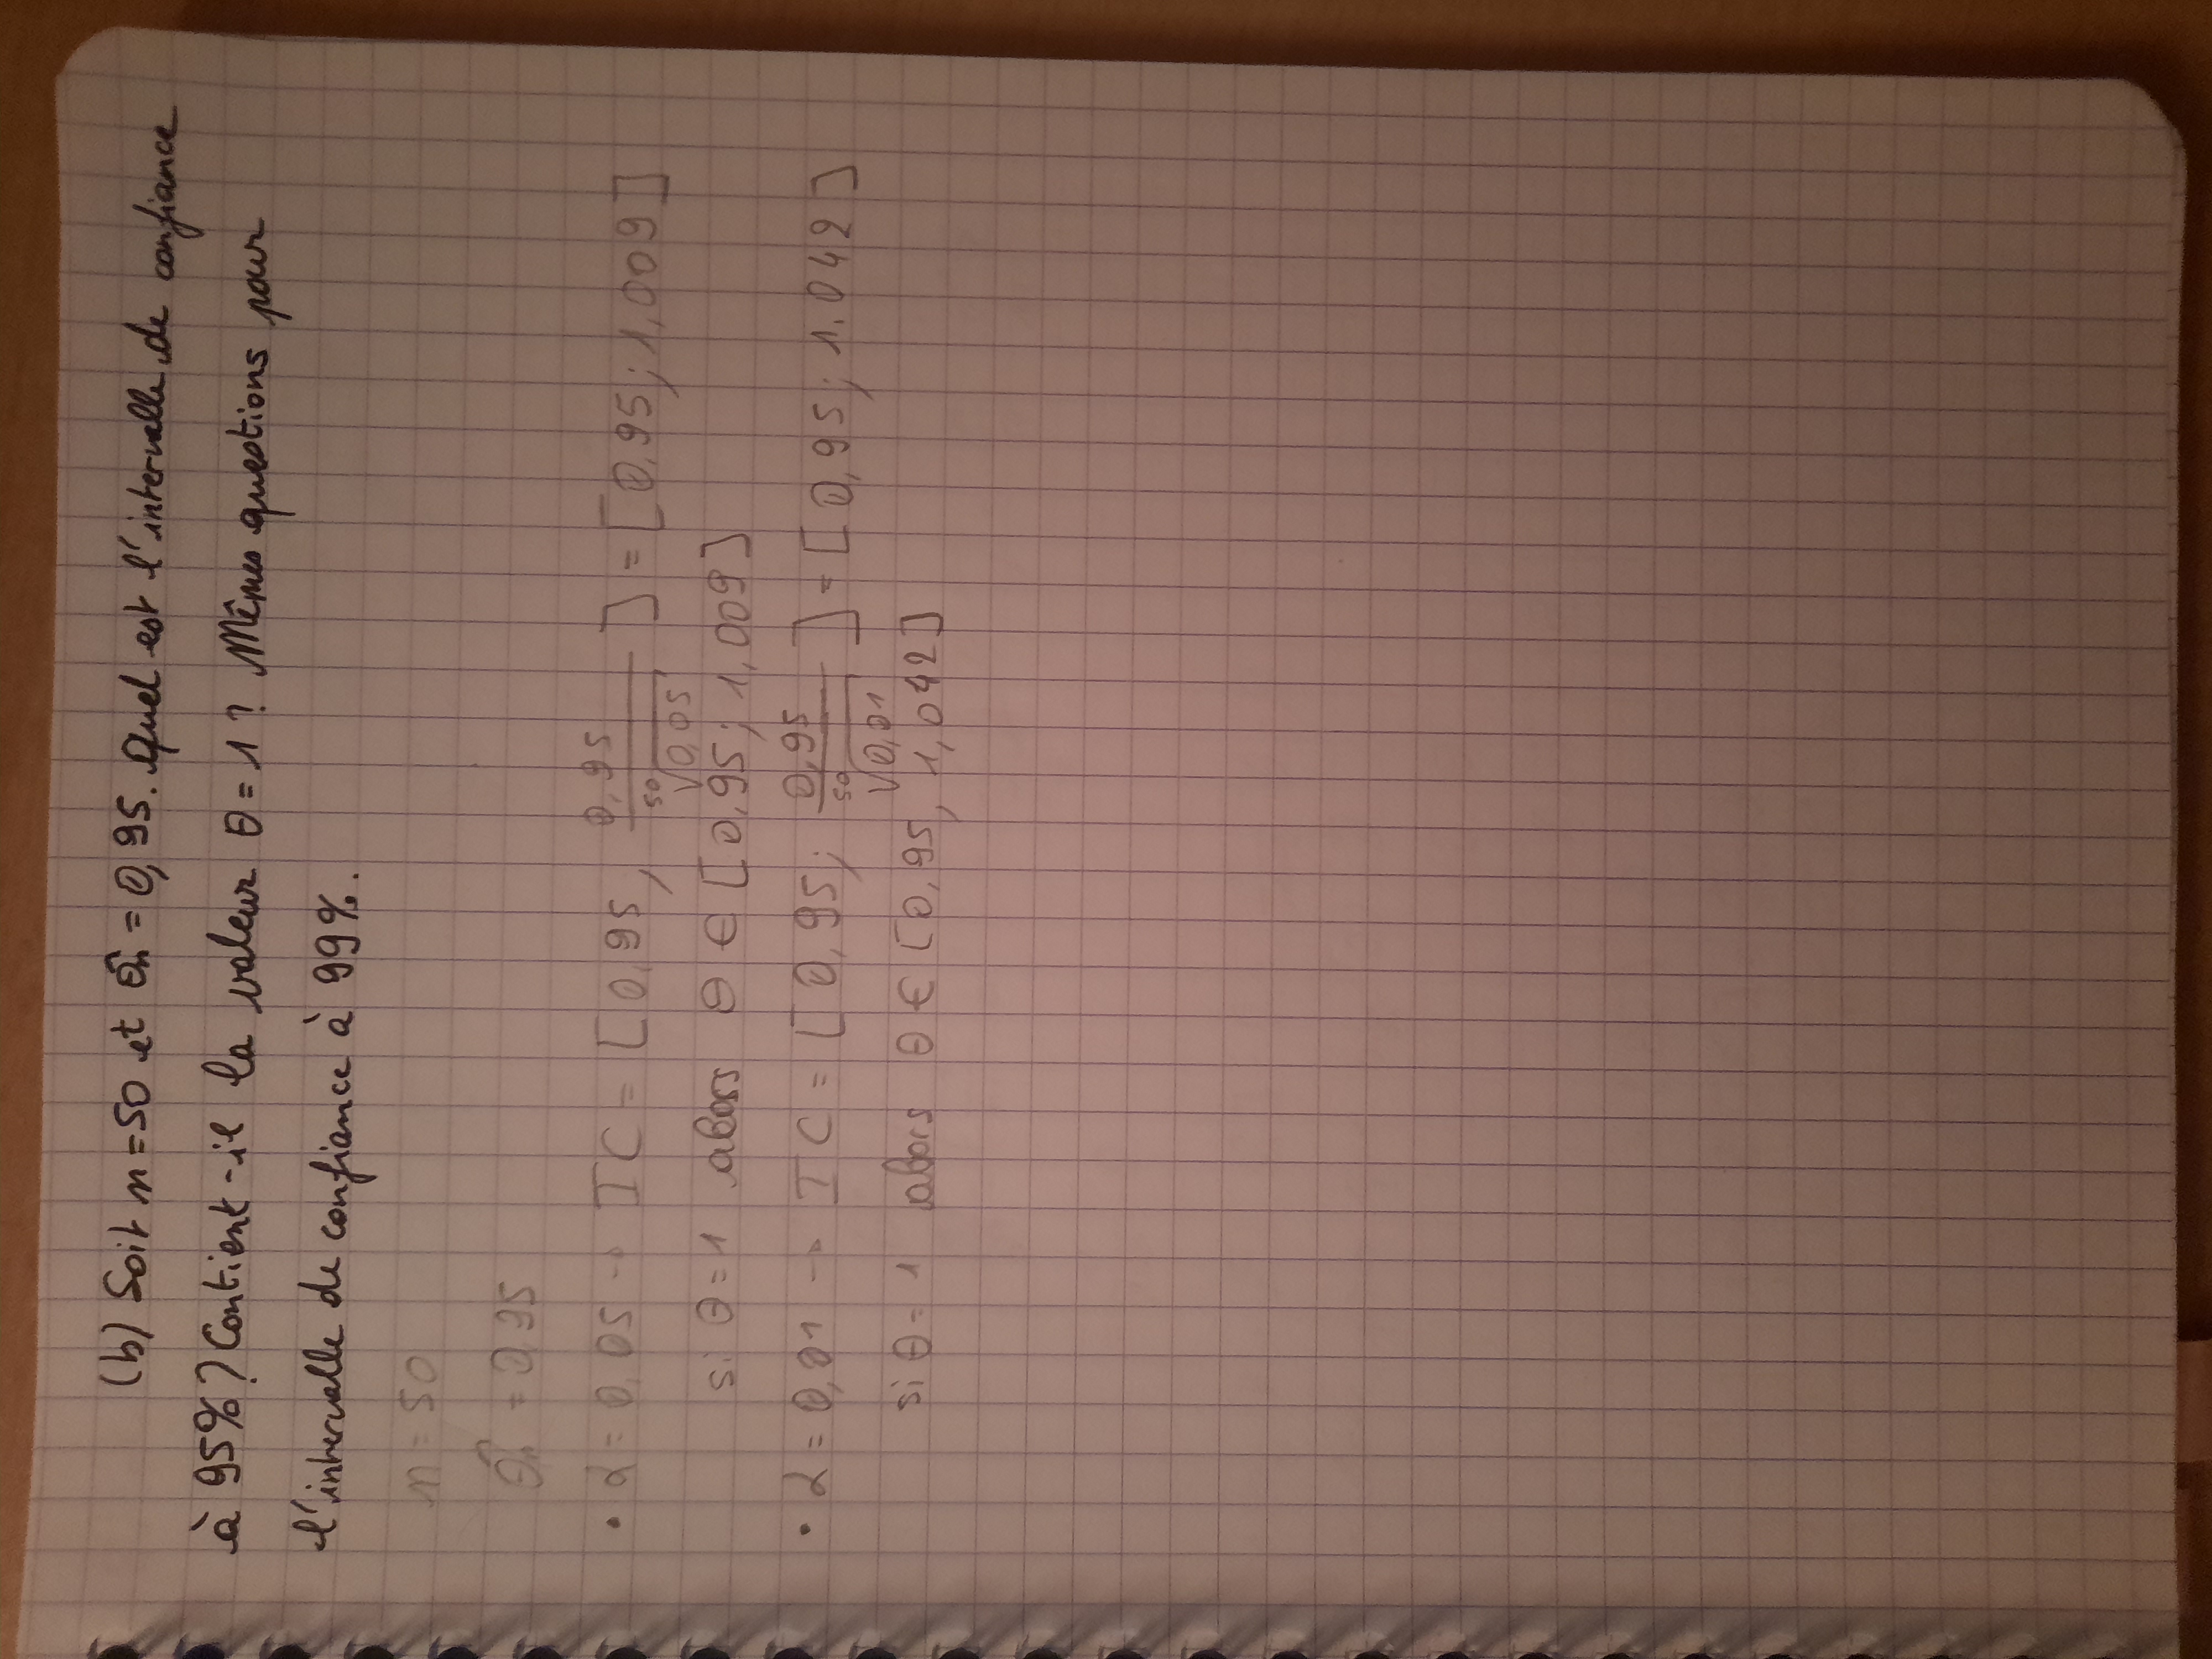 (b) Soit n=50 et θ̂n = 0,95. Quel est l'intervalle de confiance
à 95%? Contient-il la valeur θ=1? Mêmes questions pour
l'intervalle de confiance à 99%.
n = 50
θ̂n = 0,95
• α = 0,05 → IC = [0,95, 0,95 / ⁵⁰√0,05] = [0,95; 1,009]
si θ=1 alors θ ∈ [0,95; 1,009]
• α = 0,01 → IC = [0,95; 0,95 / ⁵⁰√0,01] = [0,95; 1.042]
si θ=1 alors θ ∈ [0,95, 1,042]